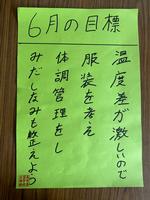 6月の目標
温度差が激しいので
服装を考え
体調管理をし
みだしなみも整えよう